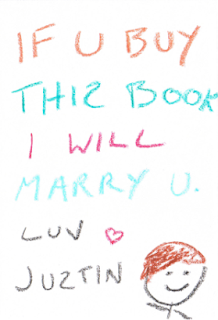 IF U BUY
THIZ BOOK
I WILL
MARRY U.
LUV
JUZTIN